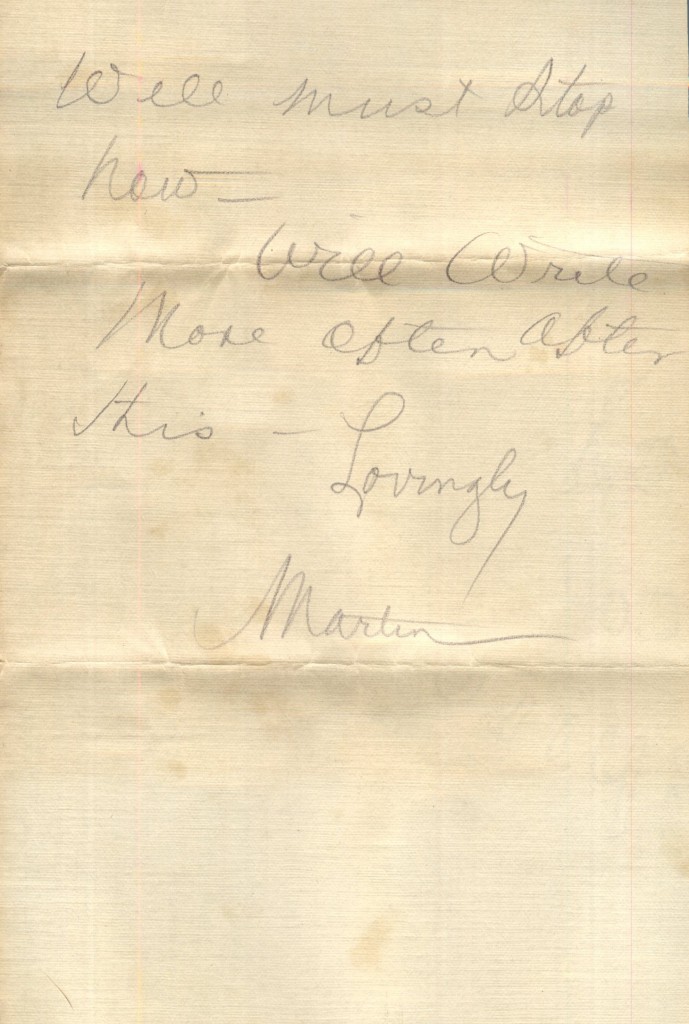 Well must stop
now —
Will Write
More often after
this —
Lovingly
Martin